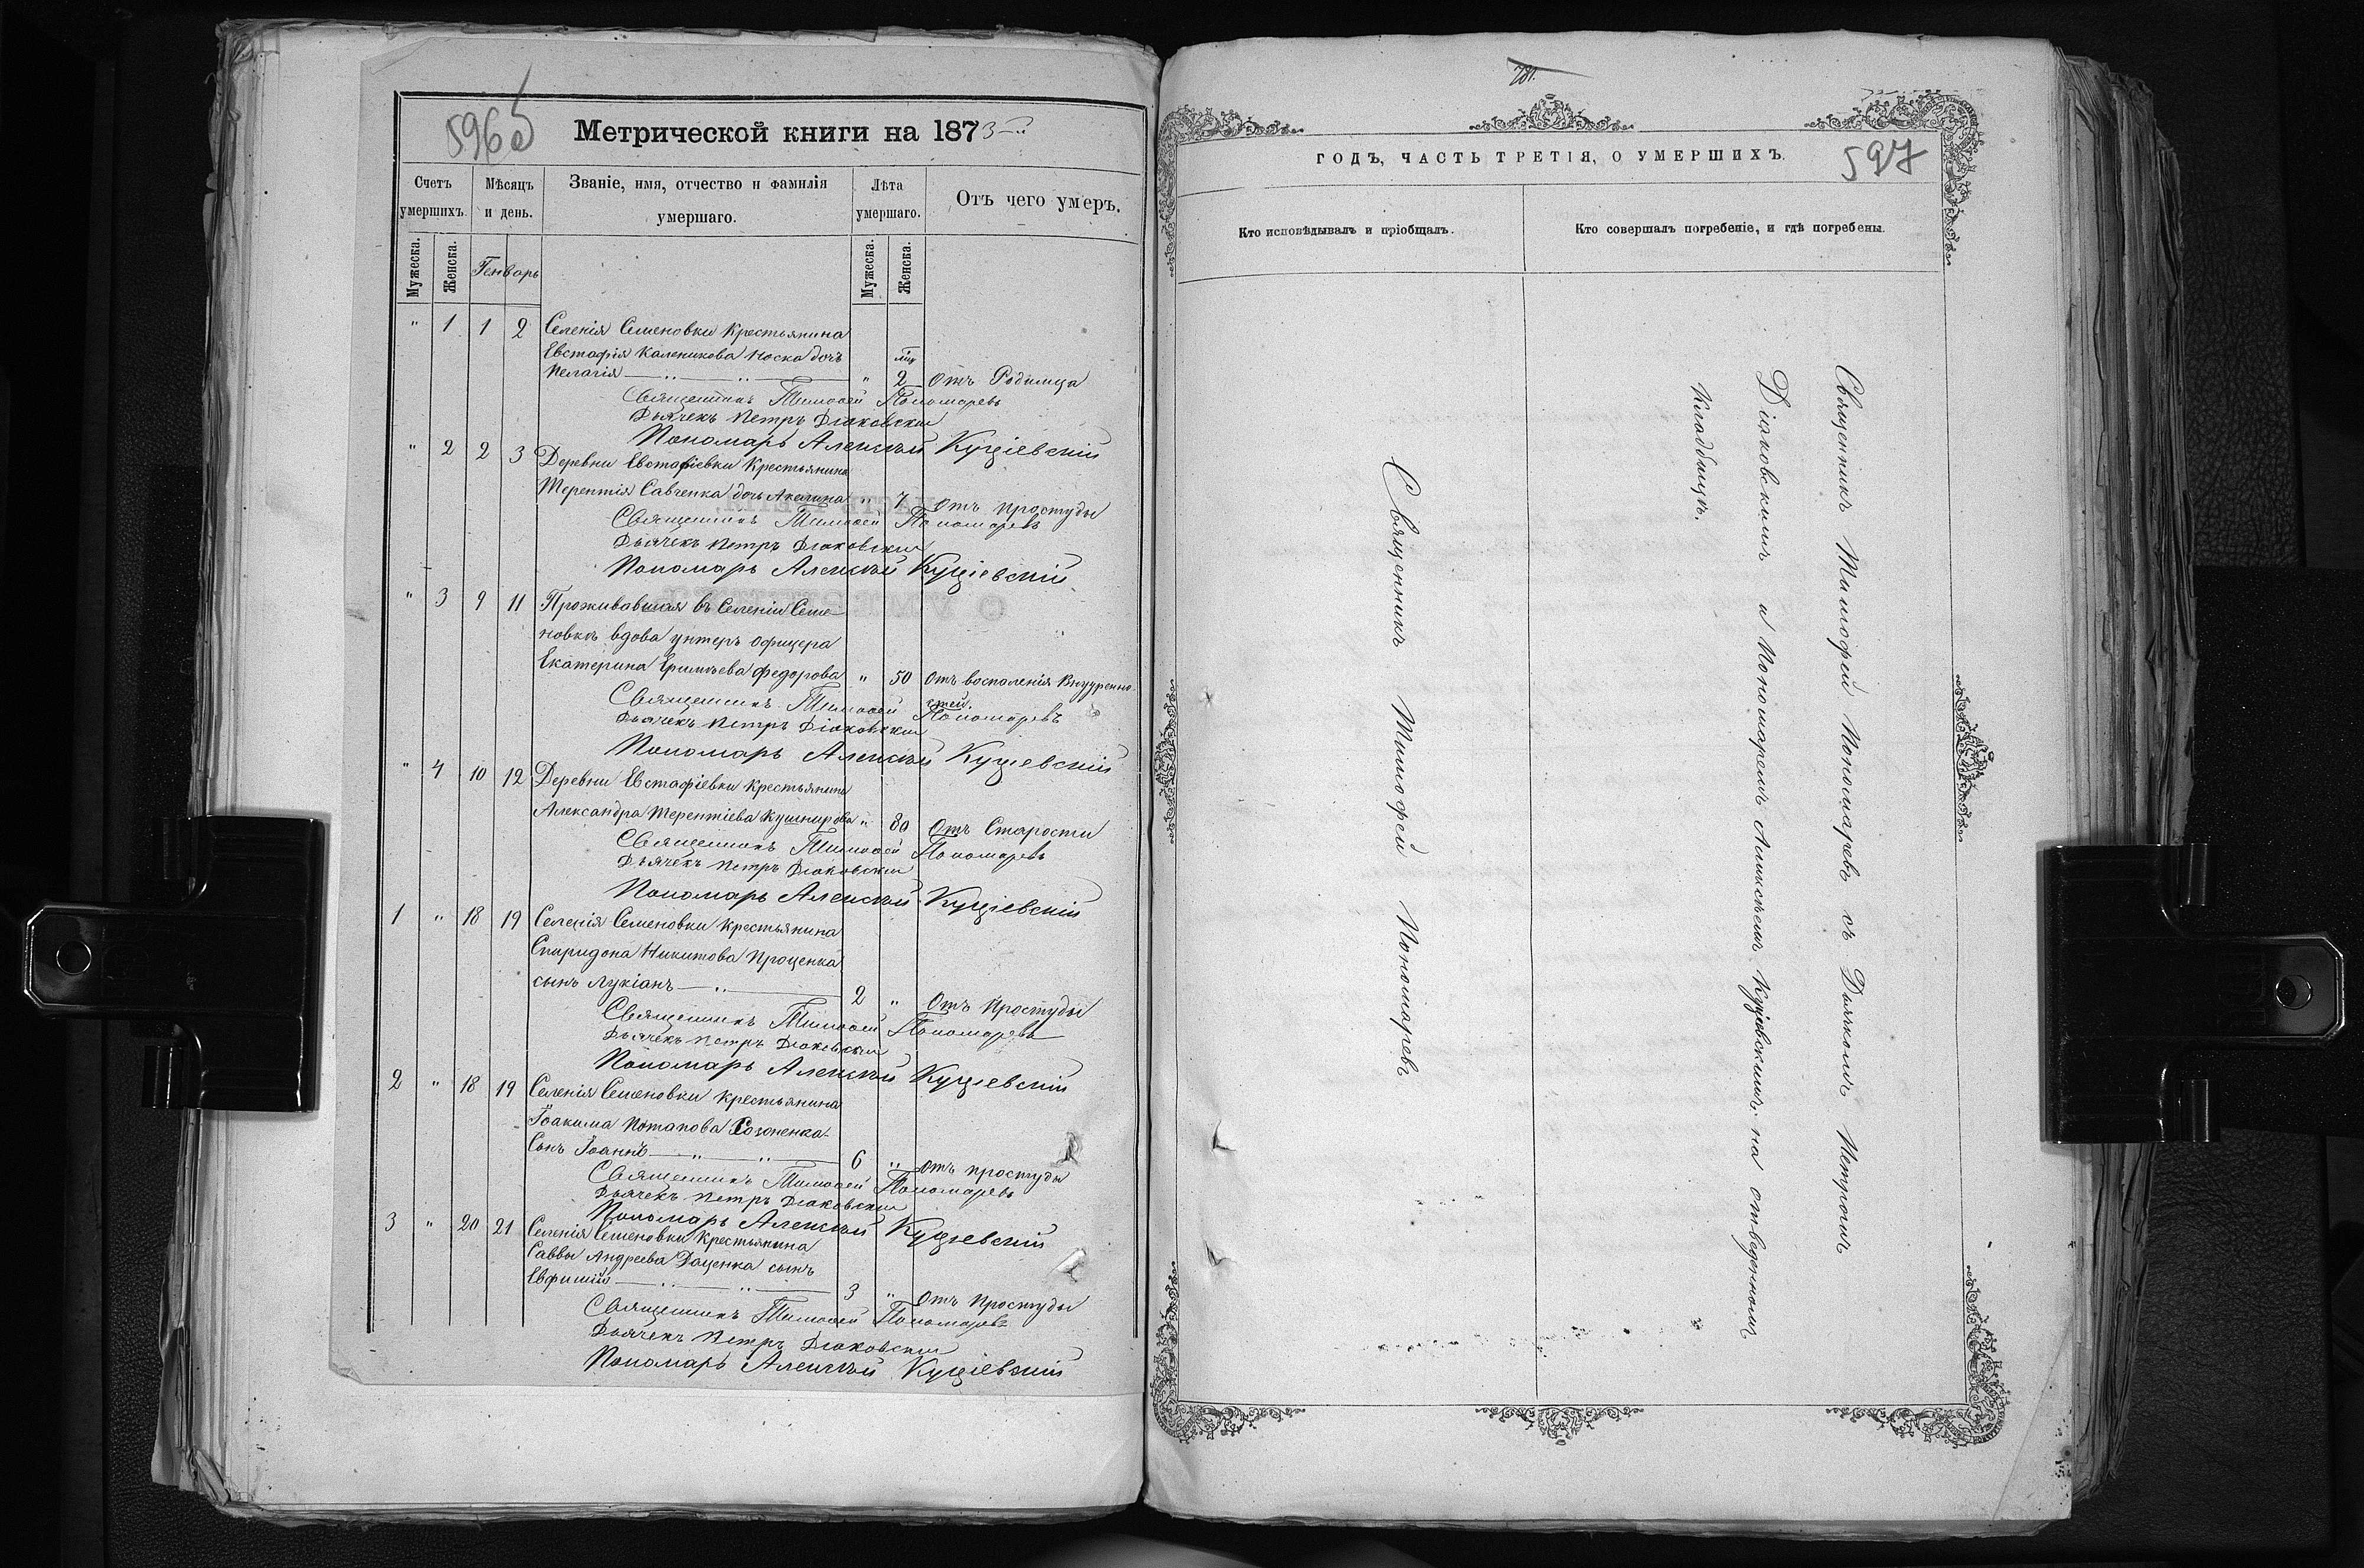 596б
Метрической книги на 1873
Счетъ умершихъ.
Мѣсяцъ и день.
Званіе, имя, отчество и фамилія умершаго.
Лѣта умершаго.
Отъ чего умеръ.
Мужеска.
Женска.
Генварь
Мужеска.
Женска.
" 1 1 2 Селенія Семеновки Крестьянина
Евстафія Каленикова Носка дочь
Пелагія " 2 Отъ Родимца
Священникъ Тимофей Пономаревъ
Дьячекъ Петръ Діаковскій
Пономарь Алексѣй Куціевскій
" 2 2 3 Деревни Евстафіевки Крестьянина
Терентія Савченка дочь Акилина " 7 Отъ простуды
Священникъ Тимофей Пономаревъ
Дьячекъ Петръ Діаковскій
Пономарь Алексѣй Куціевскій
" 3 9 11 Проживавшая въ Селеніи Семе-
новкѣ вдова унтеръ офицера
Екатерина Федорова " 50 отъ воспаленія Внутренно
стей.
Священникъ Тимофей Пономаревъ
Дьячекъ Петръ Діаковскій
Пономарь Алексѣй Куціевскій
" 4 10 12 Деревни Евстафіевки Крестьянина
Александра Терентіева Кушнирова " 80 Отъ Старости
Священникъ Тимофей Пономаревъ
Дьячекъ Петръ Діаковскій
Пономарь Алексѣй Куціевскій
1 " 18 19 Селенія Семеновки Крестьянина
Спиридона Никитова Проценка
сынъ Лукіанъ 2 " Отъ Простуды
Священникъ Тимофей Пономаревъ
Дьячекъ Петръ Діаковскій
Пономарь Алексѣй Куціевскій
2 " 18 19 Селенія Семеновки Крестьянина
Іоакима Потапова Созоненка
Сынъ Іоаннъ 6 " отъ простуды
Священникъ Тимофей Пономаревъ
Дьячекъ Петръ Діаковскій
Пономарь Алексѣй Куціевскій
3 " 20 21 Селенія Семеновки Крестьянина
Саввы Андреева Даценка сынъ
Евфимій 3 " Отъ Простуды
Священникъ Тимофей Пономаревъ
Дьячекъ Петръ Діаковскій
Пономарь Алексѣй Куціевскій
ГОДЪ, ЧАСТЬ ТРЕТІЯ, О УМЕРШИХЪ.
597
Кто исповѣдывалъ и пріобщалъ.
Кто совершалъ погребеніе, и гдѣ погребены.
Священникъ Тимофей Пономаревъ
Священникъ Тимофей Пономаревъ съ Дьячкомъ Петромъ
Діаковскимъ и Пономаремъ Алексѣемъ Куціевскимъ, на отведенномъ
Кладбищѣ.